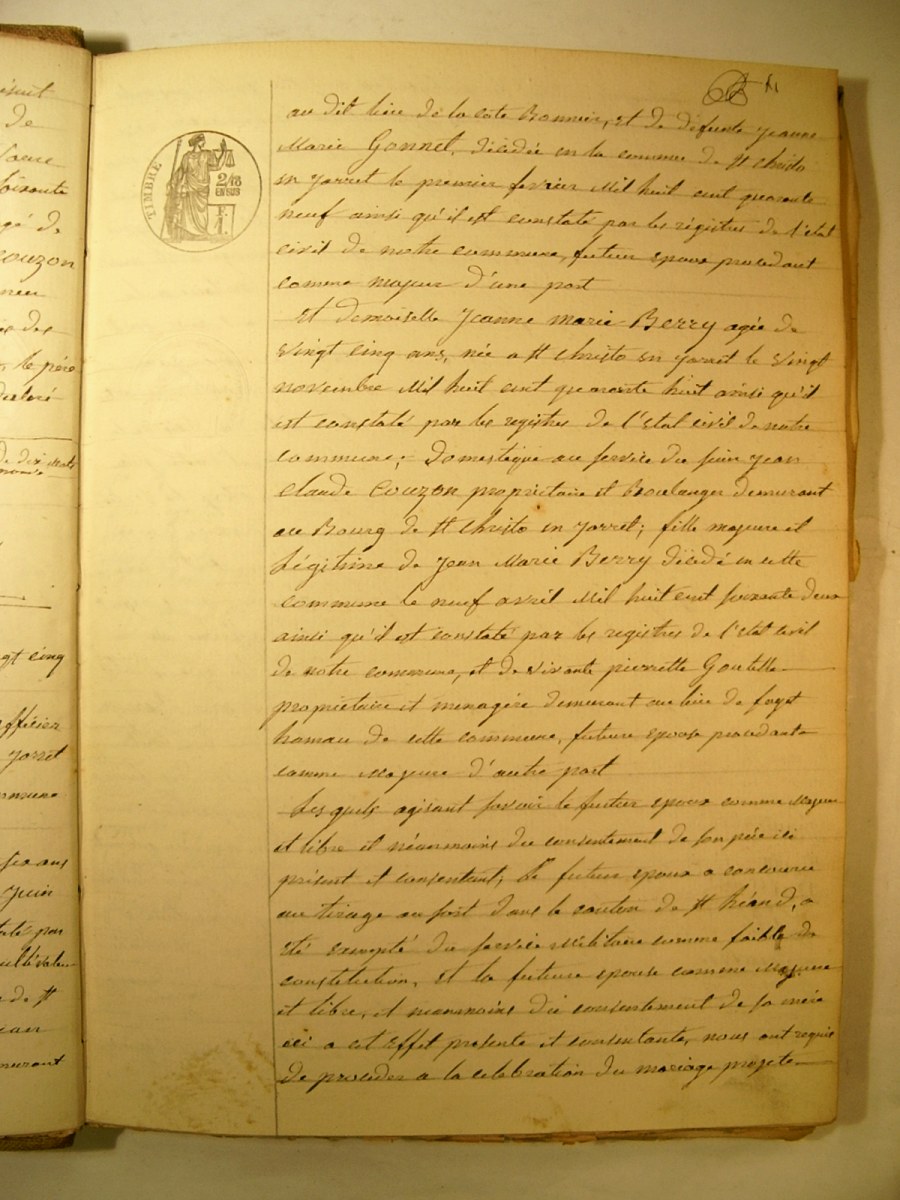 isuit
de
Soeur
gé de
couzon
le père
déclaré
gt cinq
officier
Jarret
commune
six ans
Juin
de St
ean
meurant
TIMBRE
2/10
EN SUS
1 F.
au dit lieu de la cote Bonnier, et de défunte jeanne
Marie Gonnet, décédée en la commune de St Christo
en jarret le premier fevrier Mil huit cent quarante
neuf ainsi qu'il est constaté par les régistres de l'état
civil de notre commune, futur epoux procedant
comme majeur d'une part
Et demoiselle Jeanne marie Berry agée de
vingt cinq ans, née a St christo en jarret le vingt
novembre Mil huit cent quarante huit ainsi qu'il
est constaté par les registres de l'état civil de notre
commune; domestique au service du sieur jean
claude couzon propriétaire et Boulanger demeurant
au Bourg de St Christo en jarret; fille majeure et
Légitime de Jean Marie Berry décédé en cette
commune le neuf avril Mil huit cent soixante deux
ainsi qu'il est constaté par les registres de l'état civil
de notre commune, et de vivante pierrette Goutelle
propriétaire et menagère demeurant au lieu de
hameau de cette commune, future epouse procedante
comme Majeure d'autre part
Lesquels agisant savoir le futur epoux comme Majeur
et libre et néanmoins du consentement de son père ici
présent et consentant, le futur epoux a concouru
au tirage au sort dans le canton de St héand, a
été exempté du service Militaire comme faible de
constitution, et la future epouse comme Majeure
et libre, et néanmoins du consentement de sa mère
ici a cet Effet presente et consentante, nous ont requis
de proceder a la celebration du mariage projeté